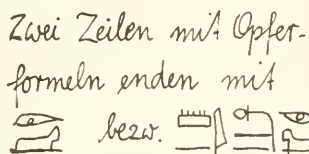 Zwei Zeilen mit Opfer-
formeln enden mit
bezw.